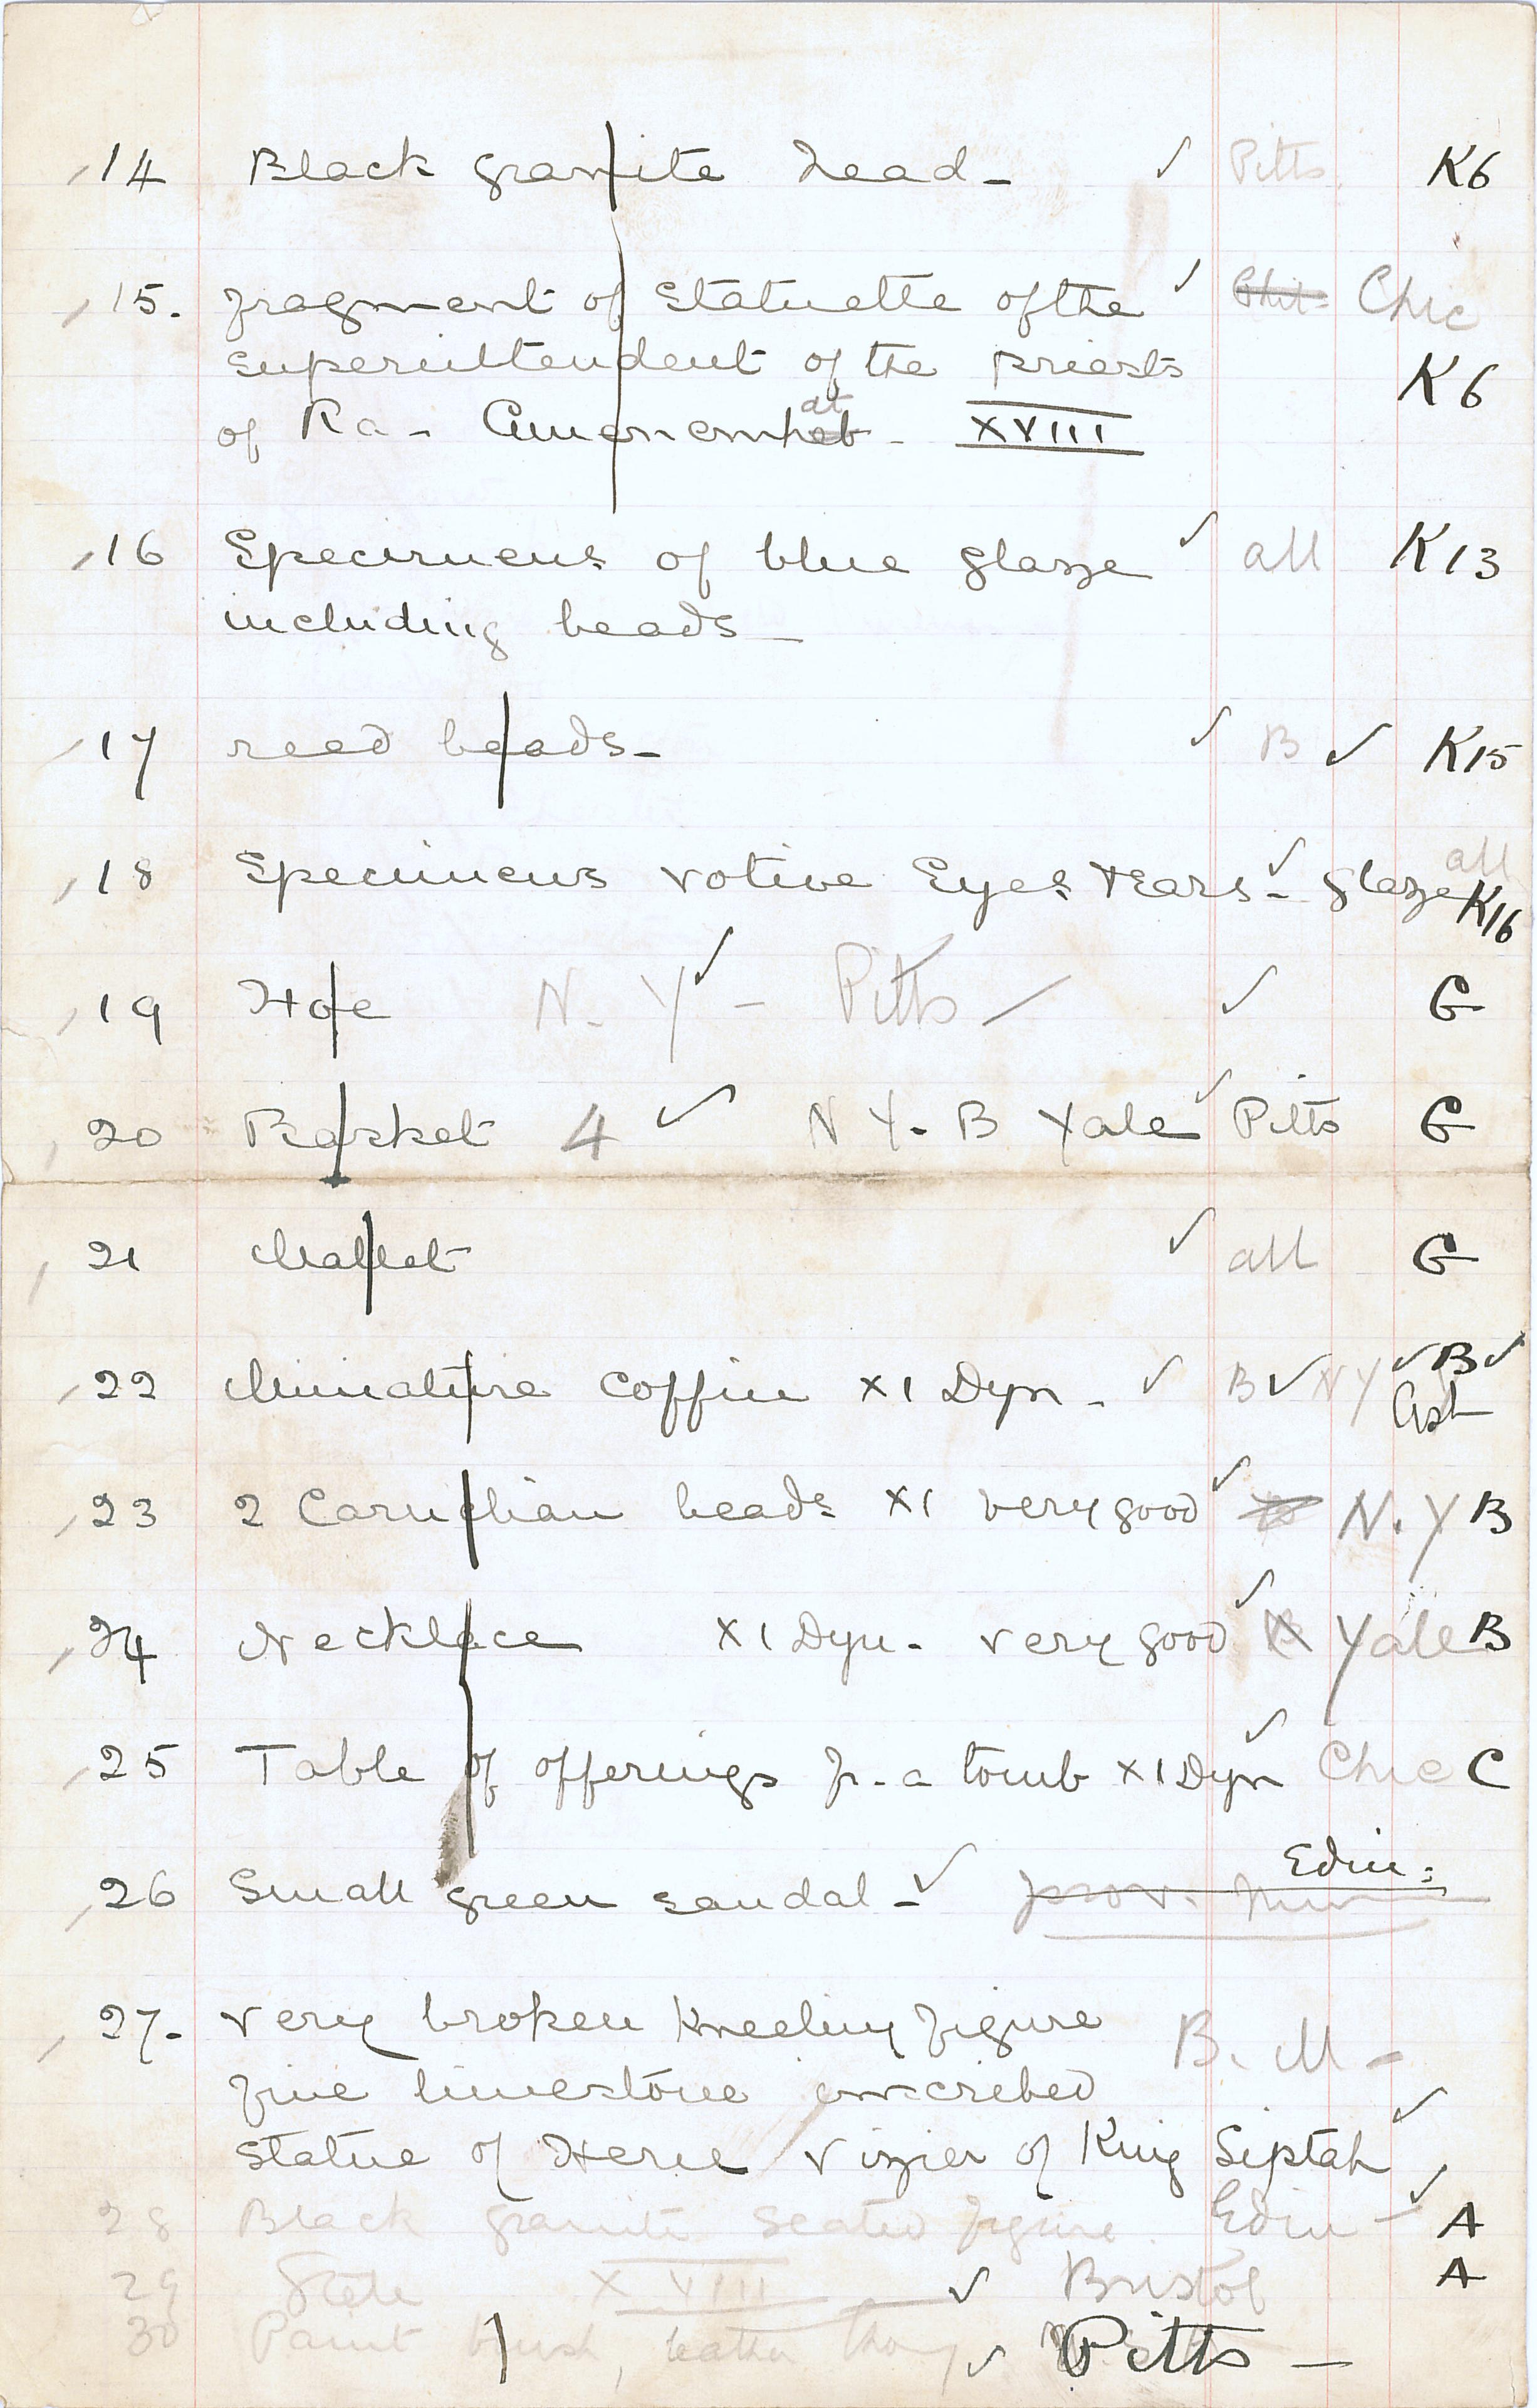 14 Black granite head - ✓ Pitts. K6
15. fragment of Statuette of the ✓ Chic
Superintendent of the priests K6
of Ra - Amenemhat - XVIII
16 Specimens of blue glaze ✓ all K13
including beads -
17 reed beads - ✓ B ✓ K15
18 Specimens votive Eyes & Ears - ✓ glaze all K16
19 Hoe N. Y ✓ - Pitts - ✓ G
20 Basket 4 ✓ N Y. B Yale ✓ Pitts G
21 Mallet ✓ all G
22 Miniature coffin XI Dyn - ✓ B ✓ NY ✓ B ✓
Ash
23 2 Carnelian beads XI very good ✓ N.Y B
24 Necklace XI Dyn. very good ✓ Yale B
25 Table of offerings fr. a tomb XI Dyn ✓ Chic C
26 Small green sandal - ✓ Edin:
27. very broken kneeling figure B. M -
fine limestone inscribed
statue of Here Vizier of King Siptah ✓
28 Black granite seated figure. Edin - ✓ A
29 Stele XVIII ✓ Bristol A
30 Paint brush, leather thong ✓ Pitts -